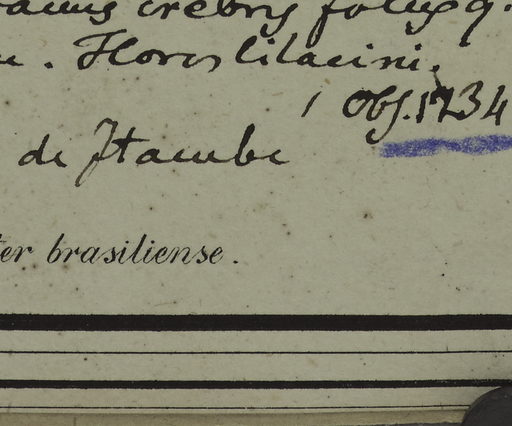 ramis crebris foliisq.
. Flores lilacini.
Obs. 1734
de Itacube
ter brasiliense.